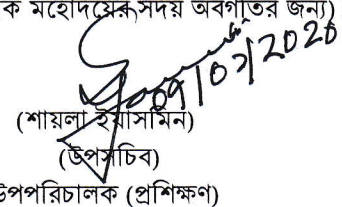 ক মহোদয়ের সদয় অবগতির জন্য)
(শায়লা ইয়াসমিন)
(উপসচিব)
উপপরিচালক (প্রশিক্ষণ)